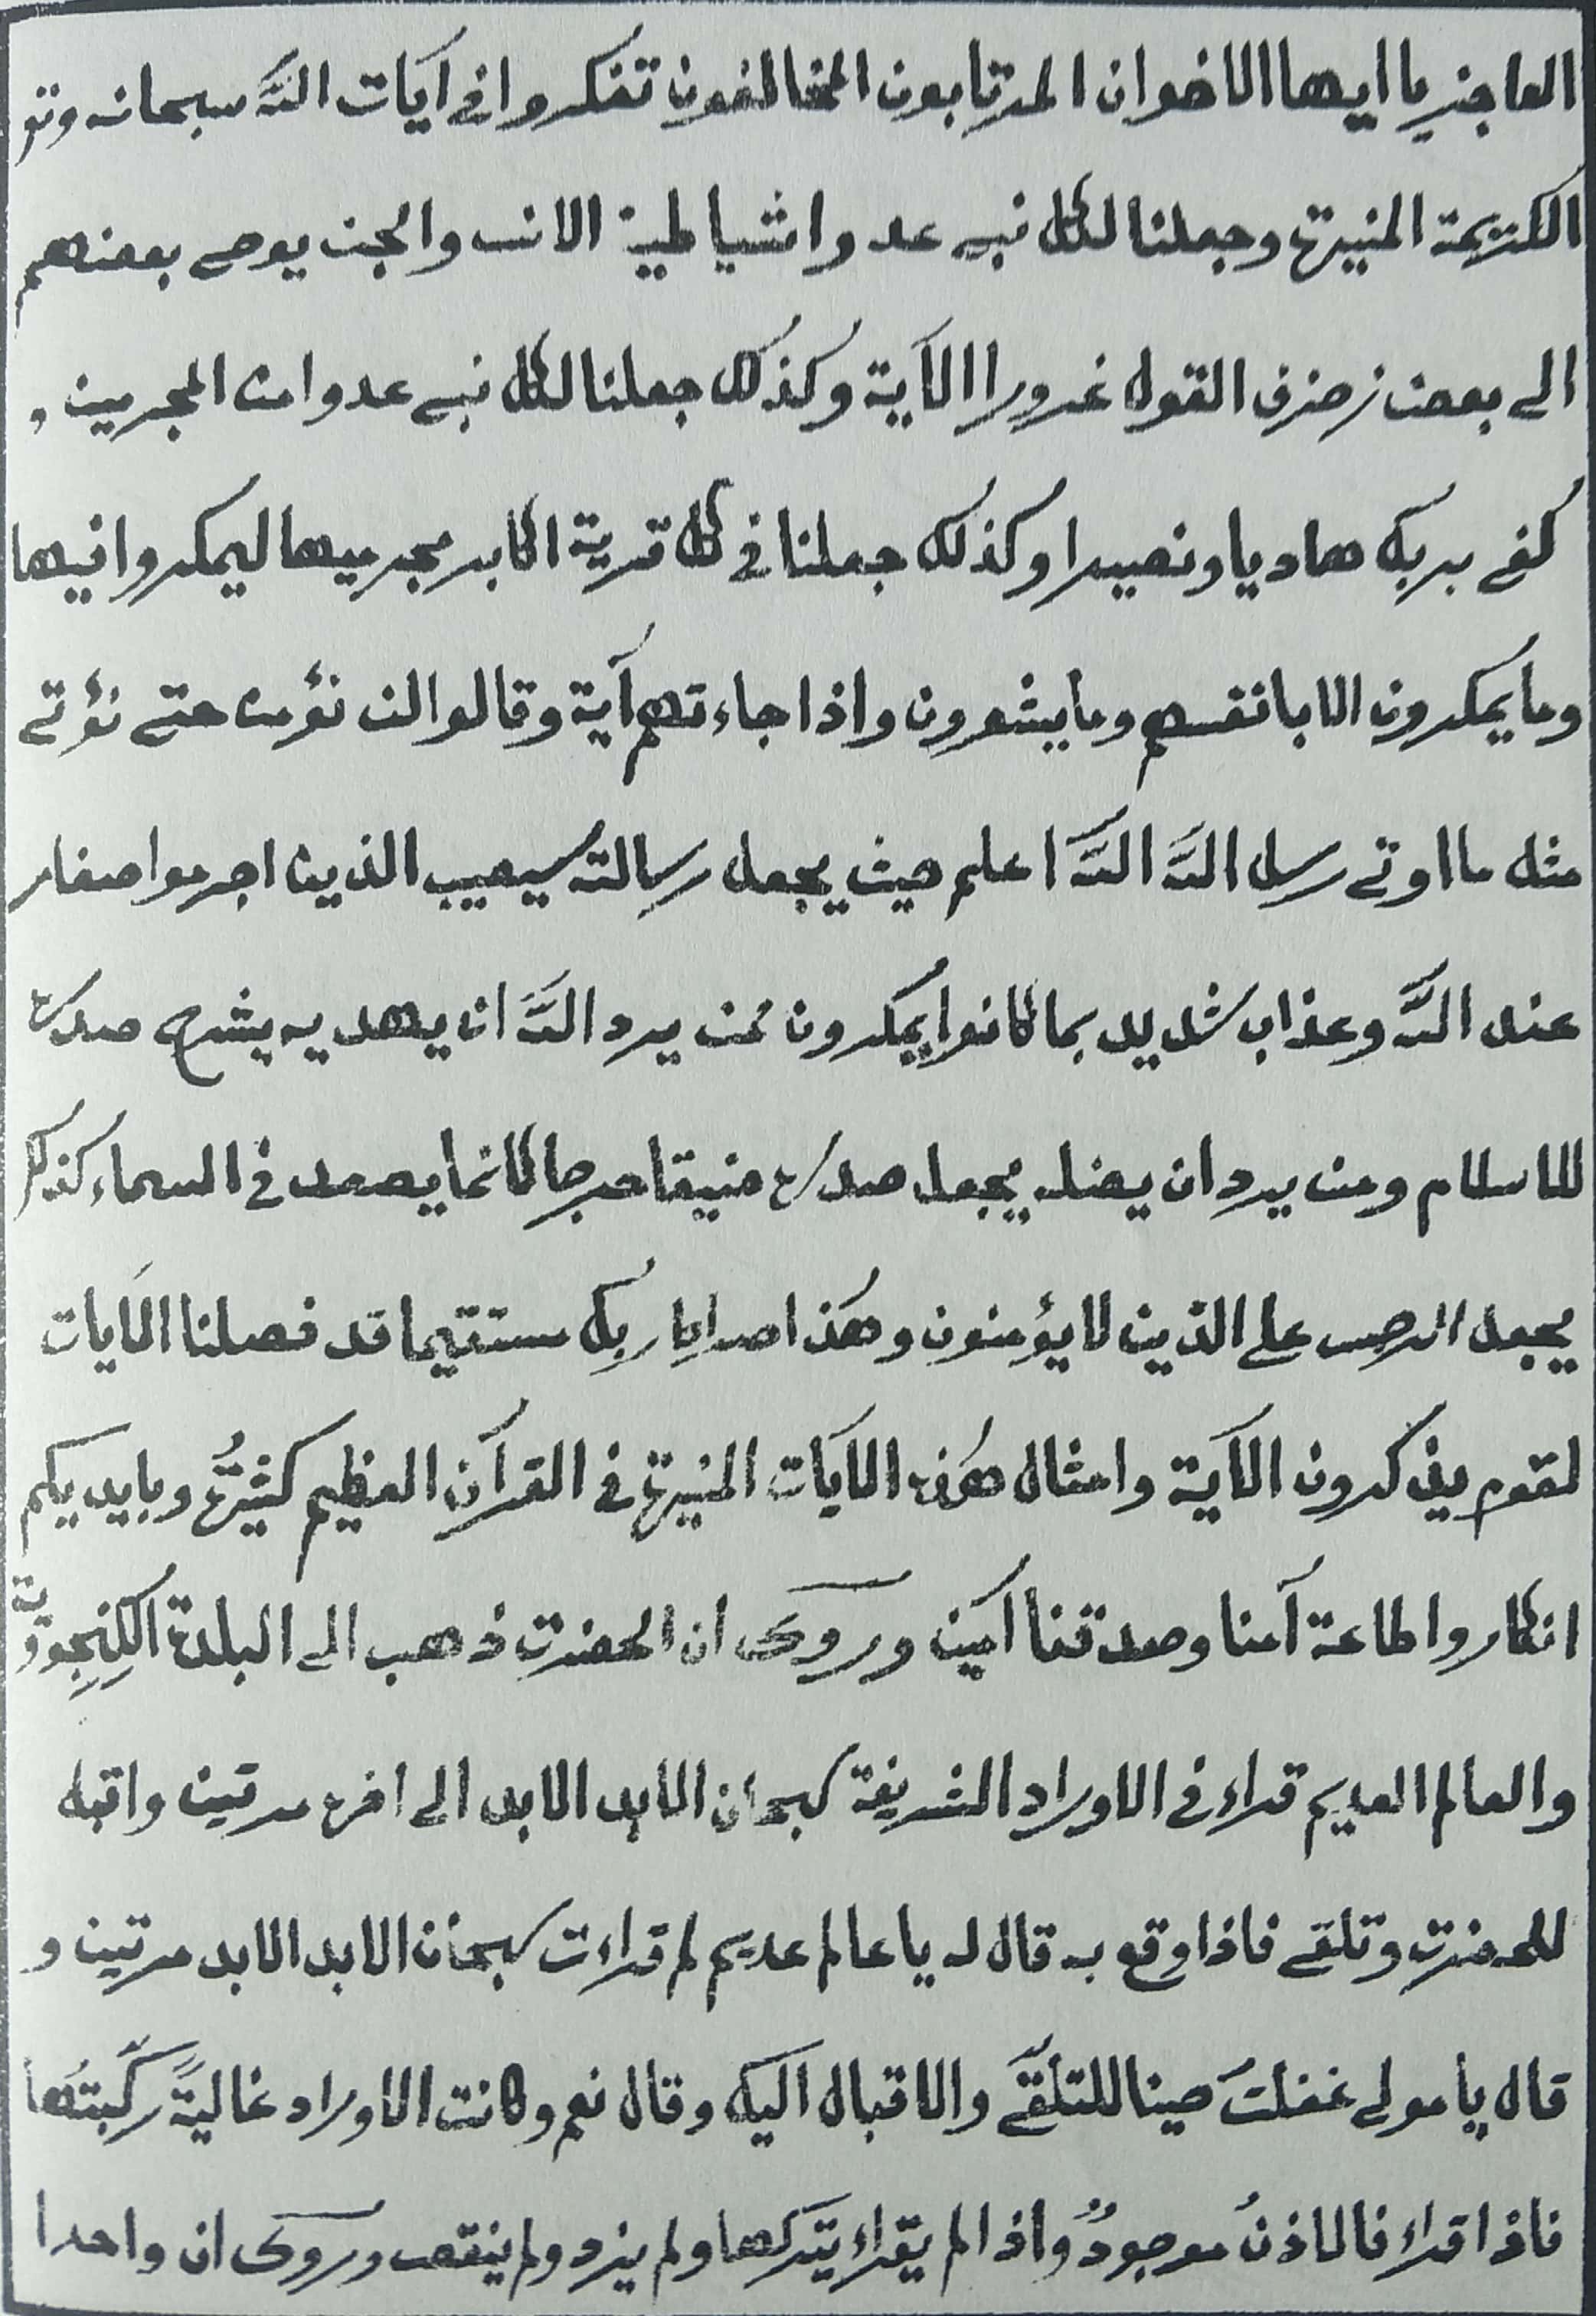 العاجز يا ايها الاخوان المرتابون المخالفون تفكروا فى آيات اللّه سبحانه وتع
الكريمة المنيرة وجعلنا لكل نبى عدوا شياطين الانس والجن يوحى بعضهم
الى بعض زخرف القول غرورا الآية وكذلك جعلنا لكل نبى عدوا من المجرمين و
كفى بربك هاديا ونصيرا وكذلك جعلنا فى كل قرية اكابر مجرميها ليمكروا فيها
وما يمكرون الا بانفسهم وما يشعرون واذا جاءتهم آية وقالوا لن نؤمن حتى نؤتى
مثل ما اوتى رسل اللّه اللّه اعلم حيث يجعل رسالته سيصيب الذين اجرموا صغار
عند اللّه وعذاب شديد بما كانوا يمكرون فمن يرد اللّه ان يهديه يشرح صدره
للاسلام ومن يرد ان يضله يجعل صدره ضيقا حرجا كانما يصعد فى السماء كذلك
يجعل الرجس على الذين لا يؤمنون وهذا صراط ربك مستقيما قد فصلنا الآيات
لقوم يذكرون الآية وامثال هذه الآيات المنيرة فى القرآن العظيم كثيرةٌ وبايديكم
انكار واطاعة آمنا وصدقنا آمين وروى ان الحضرت ذهب الى البلدة الكنجوويّة
والعالم العديم قراء فى الاوراد الشريفة سبحان الابد الابد الى اخره مرتين واقبل
للحضرت وتلقى فاذا وقع به قال له يا عالم عديم لم قراءت سبحان الابد الابد مرتين و
قال يا مولى غفلتُ حينا للتلقّى والاقبال اليك وقال نعم وكانت الاوراد غاليةً ركّبتُها
فاذا قراء فالاذنُ موجودٌ واذا لم يقراء يتركها ولم يزد ولم ينقص وروى ان واحدا